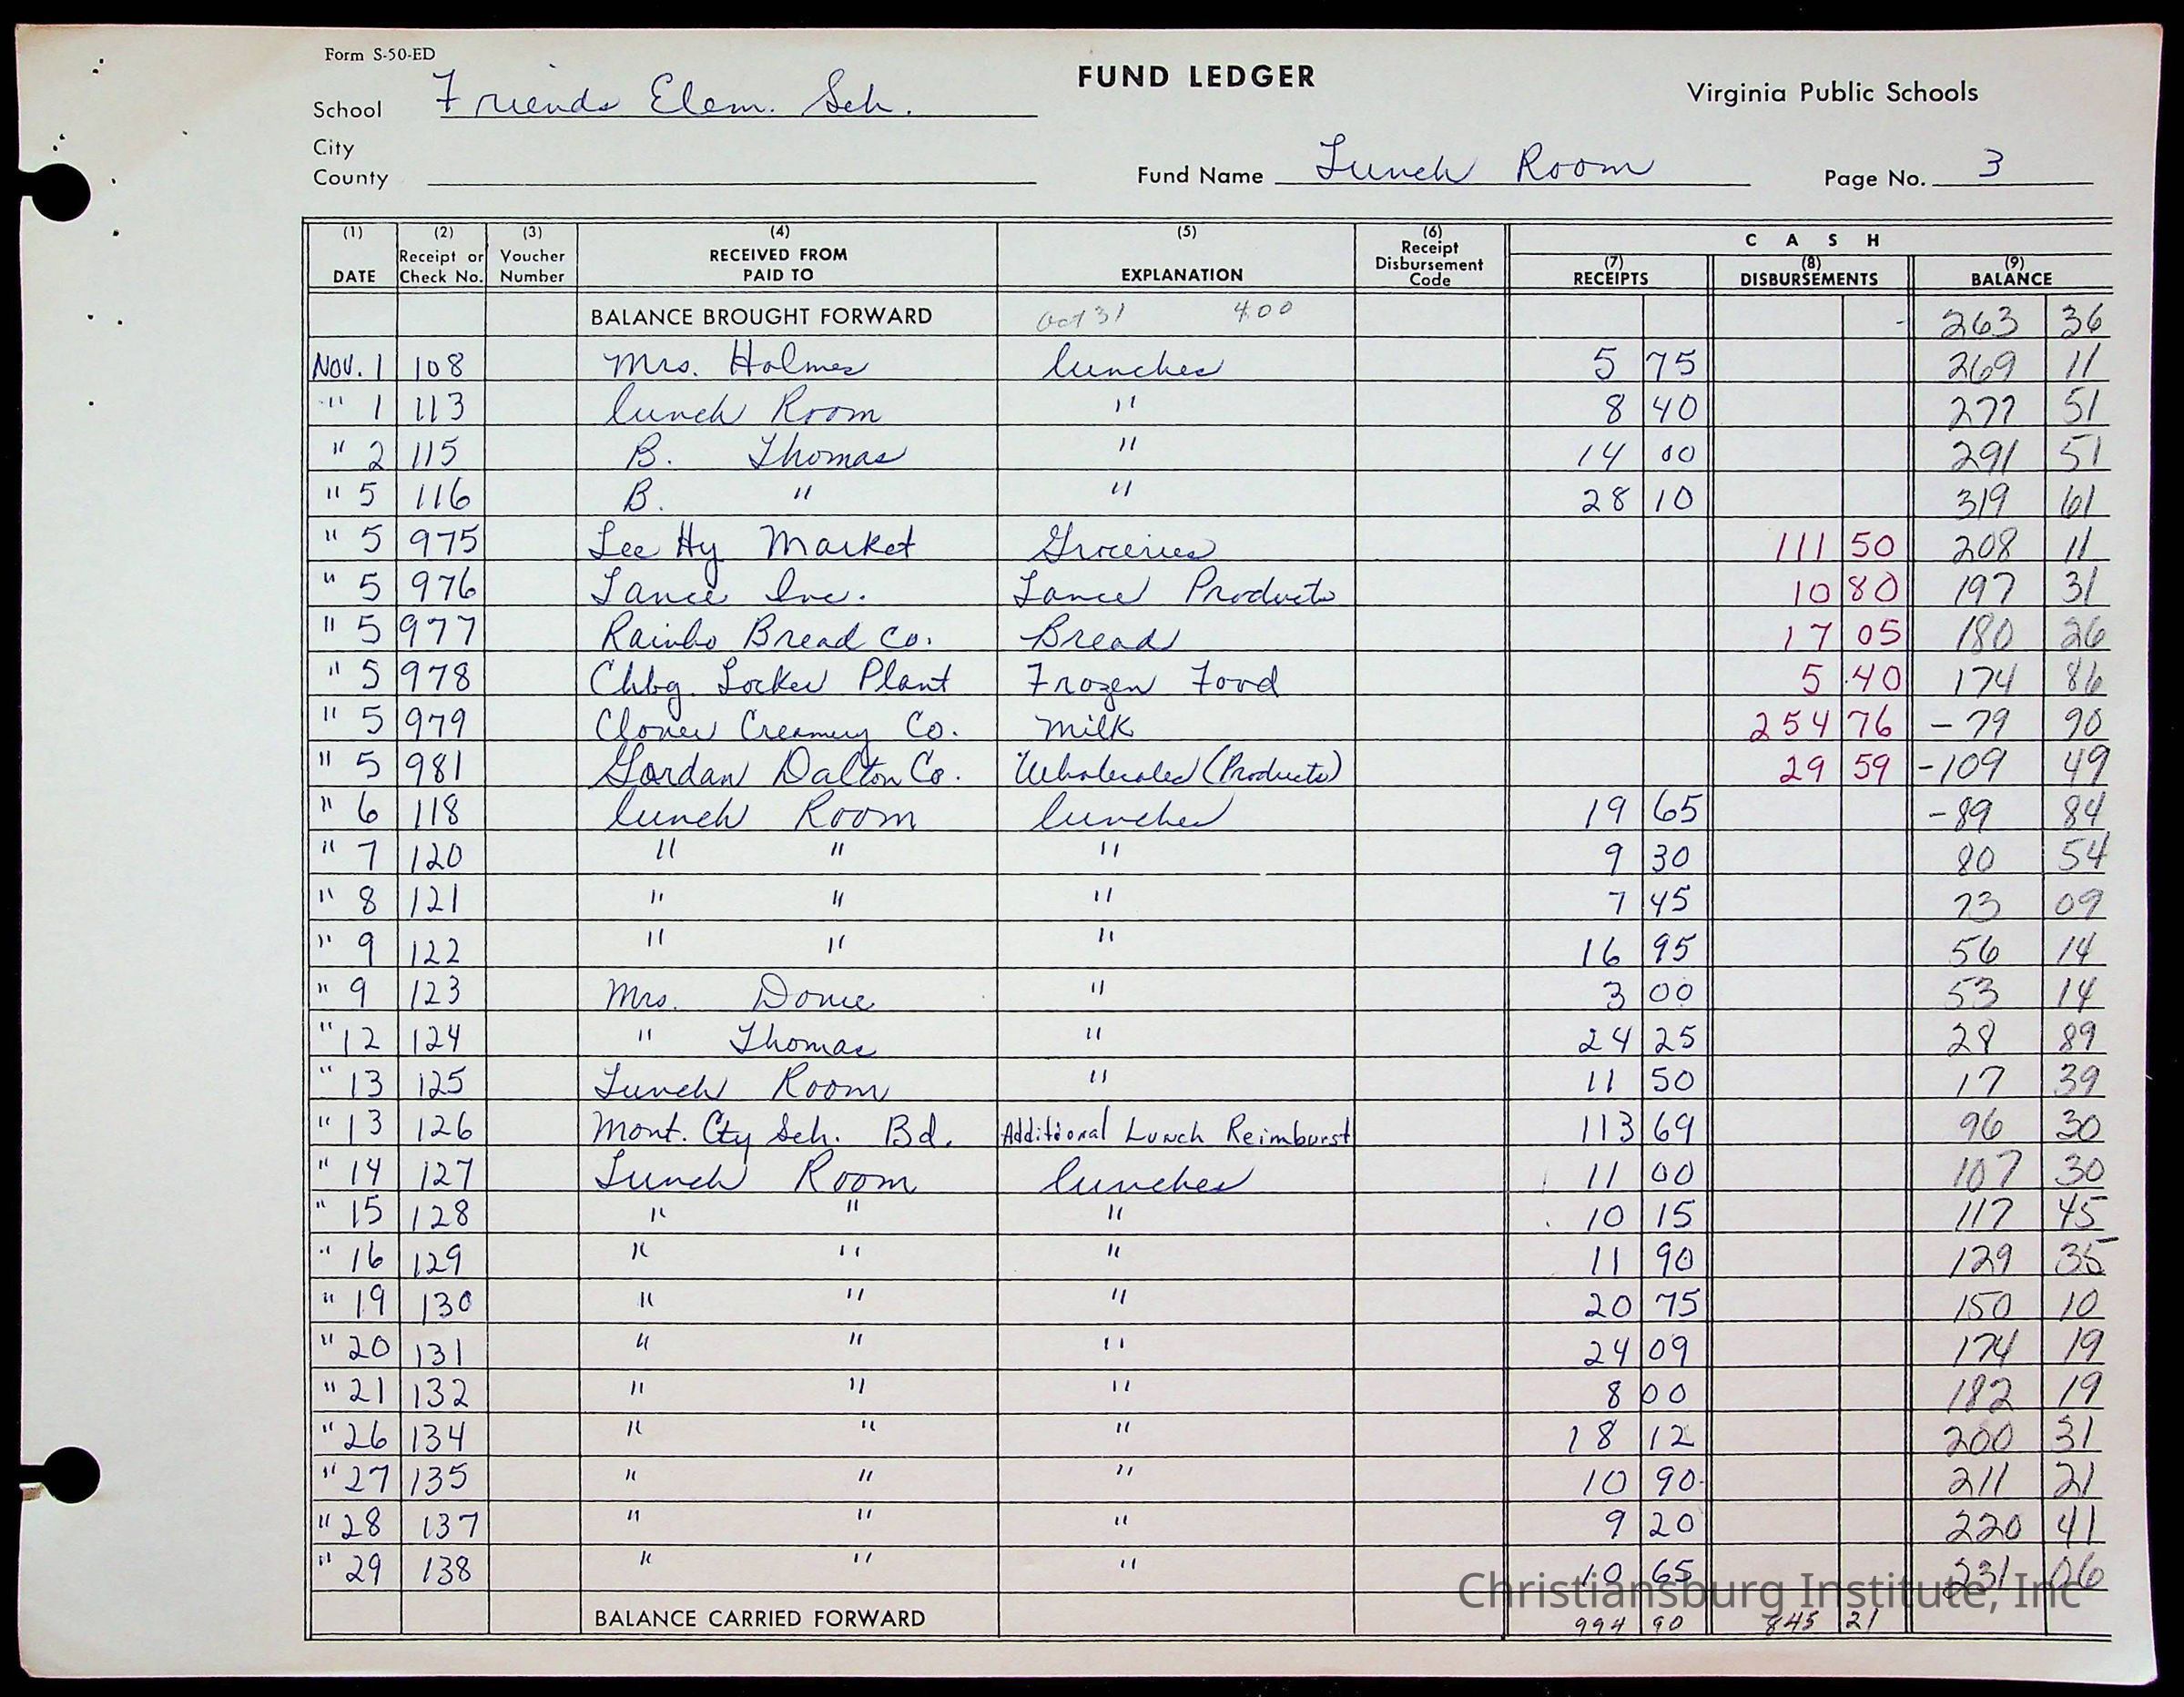 Form S-50-ED
FUND LEDGER
Virginia Public Schools
School Friends Elem. Sch.
City
County
Fund Name Lunch Room
Page No. 3
(1) DATE (2) Receipt or Check No. (3) Voucher Number (4) RECEIVED FROM PAID TO (5) EXPLANATION (6) Receipt Disbursement Code CASH (7) RECEIPTS (8) DISBURSEMENTS (9) BALANCE
BALANCE BROUGHT FORWARD Oct 31 400 263 36
NOV. 1 108 Mrs. Holmes lunches 5 75 269 11
" 1 113 lunch Room " 8 40 277 51
" 2 115 B. Thomas " 14 00 291 51
" 5 116 B. " " 28 10 319 61
" 5 975 Lee Hy Market Groceries 111 50 208 11
" 5 976 Lance Inc. Lance Products 10 80 197 31
" 5 977 Rainbo Bread Co. Bread 17 05 180 26
" 5 978 Chbg. Locker Plant Frozen Food 5 40 174 86
" 5 979 Clover Creamery Co. Milk 254 76 - 79 90
" 5 981 Gordan Dalton Co. (Products) 29 59 -109 49
" 6 118 lunch Room lunches 19 65 -89 84
" 7 120 " " " 9 30 80 54
" 8 121 " " " 7 45 73 09
" 9 122 " " " 16 95 56 14
" 9 123 Mrs. " 3 00 53 14
" 12 124 " Thomas " 24 25 28 89
" 13 125 Lunch Room " 11 50 17 39
" 13 126 Mont. Cty Sch. Bd. Additional Lunch Reimburst 113 69 96 30
" 14 127 Lunch Room lunches 11 00 107 30
" 15 128 " " " 10 15 117 45
" 16 129 " " " 11 90 129 35
" 19 130 " " " 20 75 150 10
" 20 131 " " " 24 09 174 19
" 21 132 " " " 8 00 182 19
" 26 134 " " " 18 12 200 31
" 27 135 " " " 10 90 211 21
" 28 137 " " " 9 20 220 41
" 29 138 " " " 10 65 231 06
Christiansburg Institute, Inc
BALANCE CARRIED FORWARD 994 90 845 21